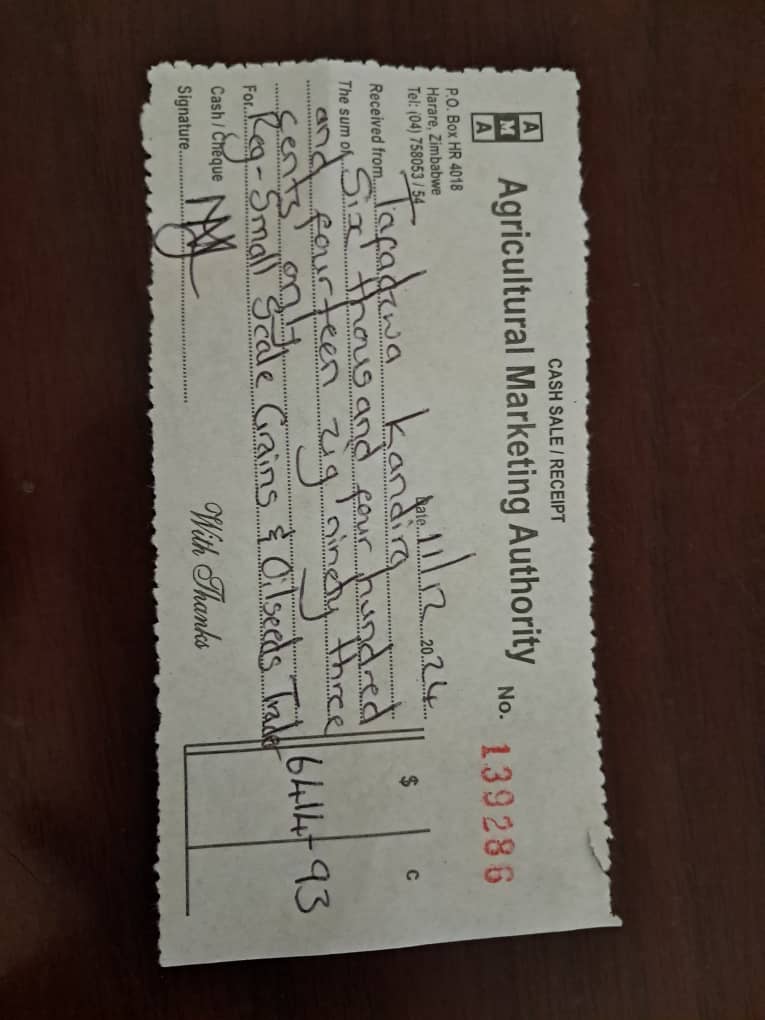 CASH SALE / RECEIPT
A
M
A
Agricultural Marketing Authority No. 139286
P.O. Box HR 4018
Harare, Zimbabwe
Tel: (04) 758053 / 54
Date 11/12 2024
Received from Tafadzwa Kandira
$ C
The sum of Six thousand four hundred
and fourteen zig ninety three
cents only 6414 - 93
For Reg - Small Scale Grains & Oilseeds Trader
Cash / Cheque
Signature
With Thanks